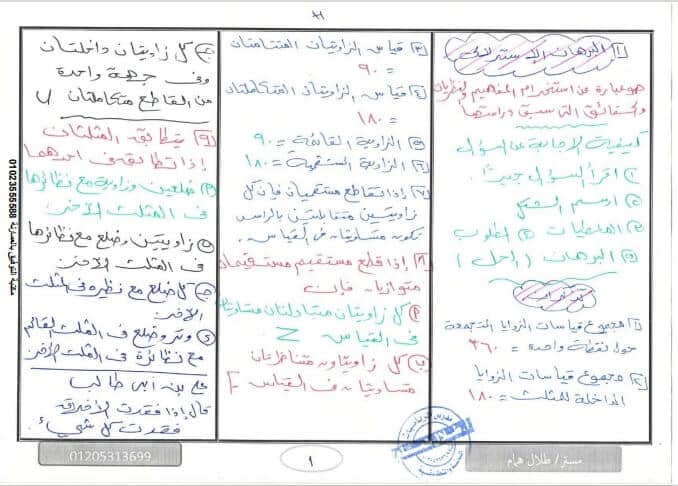 [١] البرهان الاستدلالى
هو عبارة عن استخدام المفاهيم والنظريات
والحقائق التى سبق دراستها
كيفية الإجابة عن السؤال
① اقرأ السؤال جيدًا.
② ارسم الشكل
③ المعطيات ④ المطلوب
⑤ البرهان (الحل)
تذكر أن
[١] مجموع قياسات الزوايا المتجمعة
حول نقطة واحدة = ٣٦٠
[٢] مجموع قياسات الزوايا
الداخلة للمثلث = ١٨٠
[٣] قياس الزاويتان المتتامتان
= ٩٠
[٤] قياس الزاويتان المتكاملتان
= ١٨٠
[٥] الزاوية القائمة = ٩٠
[٦] الزاوية المستقيمة = ١٨٠
[٧] إذا تقاطع مستقيمان فإن كل
زاويتين متقابلتين بالرأس
تكون متساويتان فى القياس.
[٨] إذا قطع مستقيم مستقيمان
متوازيان فإن
(٩) كل زاويتان متبادلتان متساويتان
فى القياس Z
(ب) كل زاويتان متناظرتان
متساويتان فى القياس F
(ج) كل زاويتان داخلتان
وفى جهة واحدة
من القاطع متكاملتان U
[٩] يتطابق المثلثان
إذا تطابق فى احدهما
(٩) ضلعين وزاوية مع نظائرها
فى المثلث الآخر
(ب) زاويتين وضلع مع نظائرها
فى المثلث الآخر
(ج) كل ضلع مع نظيره فى المثلث
الآخر
(د) وتر وضلع فى المثلث القائم
مع نظائره فى المثلث الآخر
على بن ابى طالب
قال إذا فقدت الأخلاق
فقدت كل شيء
01023555588
مستر / طلال همام
١
01205313699